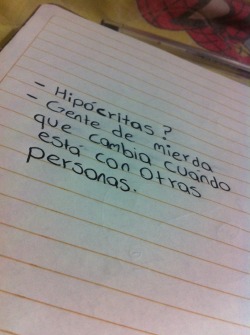 - Hipócritas?
- Gente de mierda
que cambia cuándo
está con otras
personas.